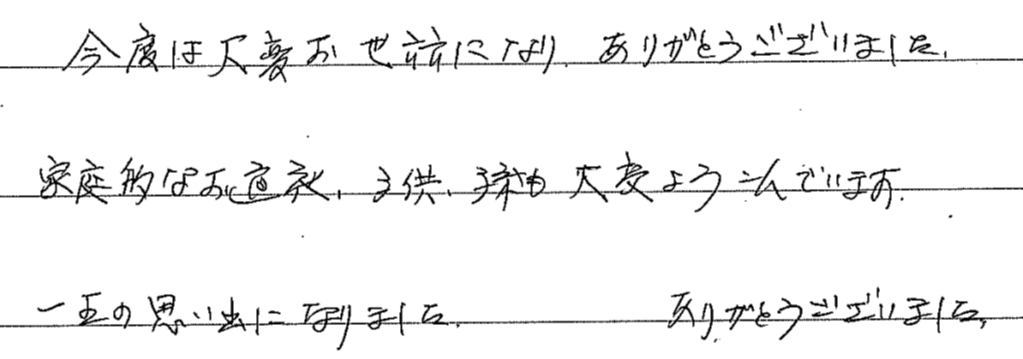 今度は大変お世話になり、ありがとうございました。
家庭的なお道永、子供、孫も大変よろこんでいます。
一生の思い出になりました。 ありがとうございました。